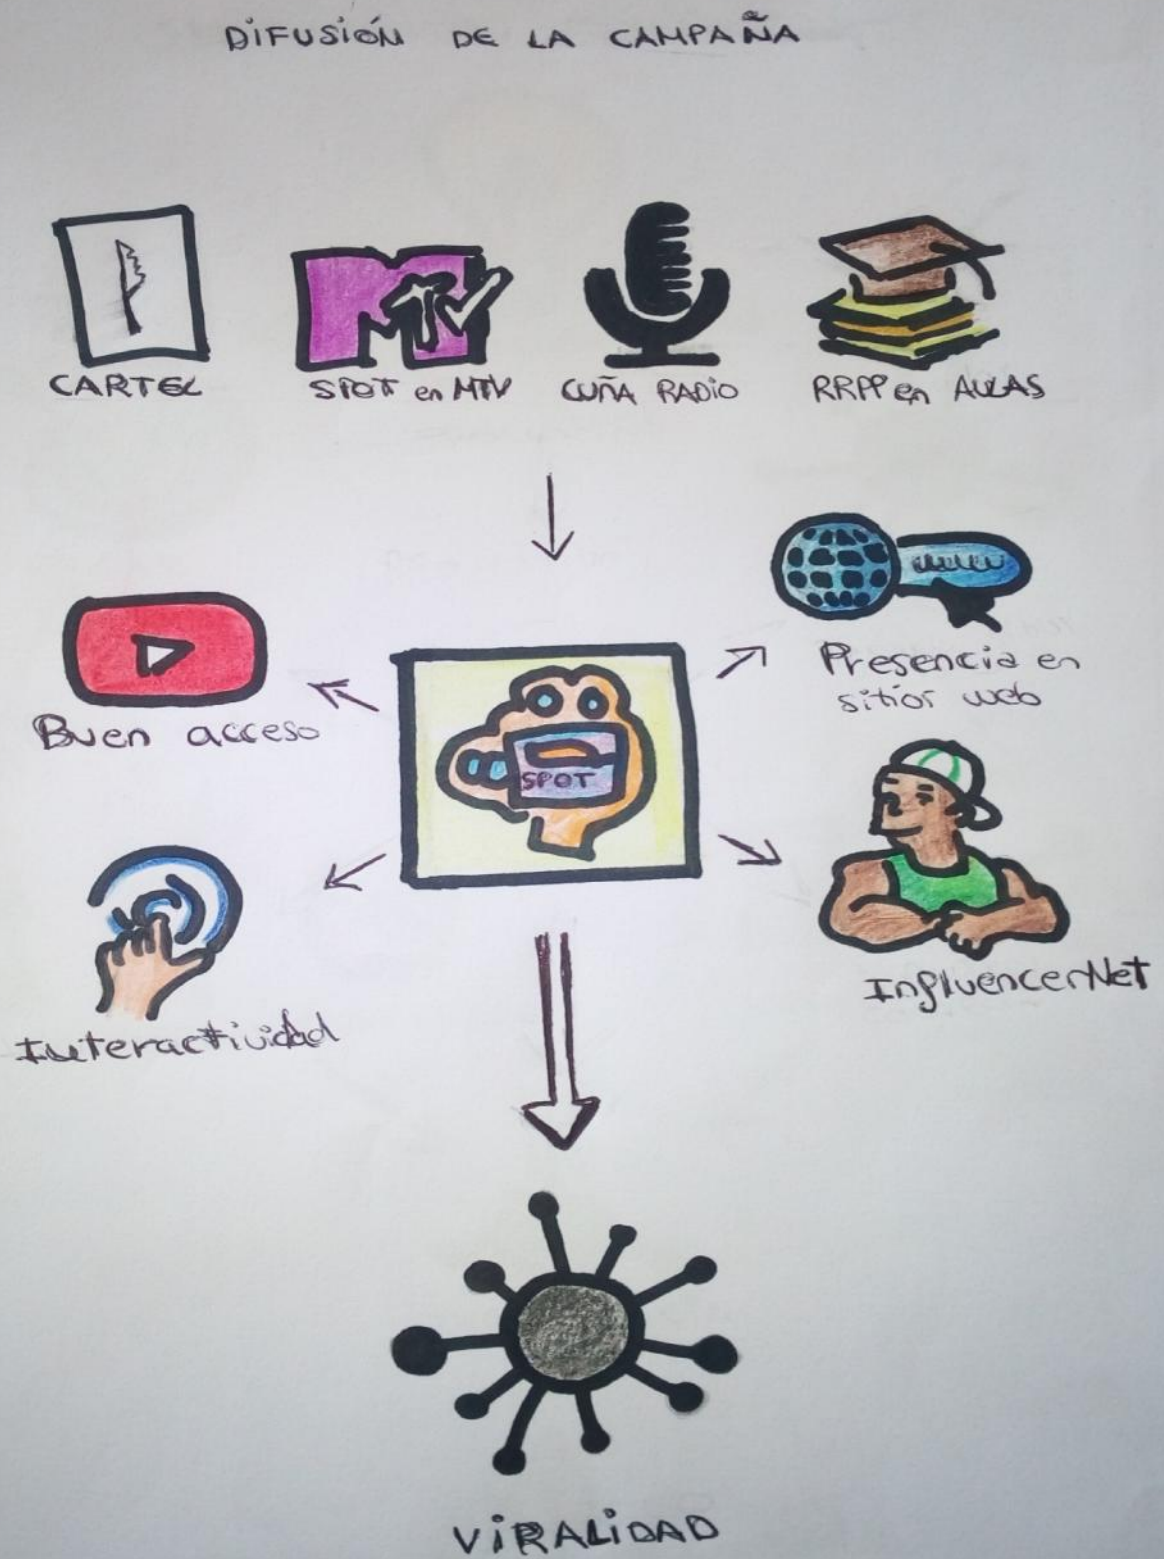 DIFUSIÓN DE LA CAMPAÑA
MTV
CARTEL
SPOT en MTV
CUÑA RADIO
RRPP en AULAS
www
Buen acceso
Presencia en
sitios web
SPOT
Interactividad
InfluencerNet
VIRALIDAD